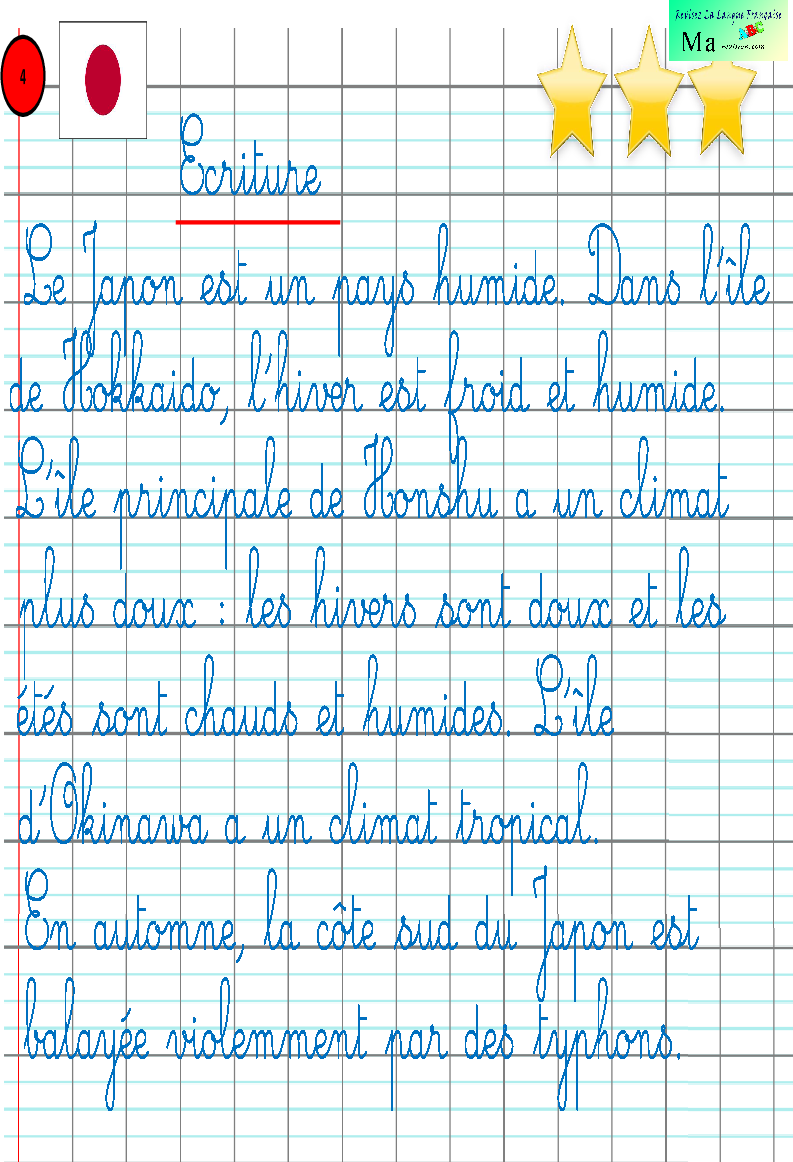 Revisez La Langue Française
4
Ma
Ecriture
Le Japon est un pays humide. Dans l'île
de Hokkaido, l'hiver est froid et humide.
L'île principale de Honshu a un climat
plus doux : les hivers sont doux et les
étés sont chauds et humides. L'île
d'Okinawa a un climat tropical.
En automne, la côte sud du Japon est
balayée violemment par des typhons.